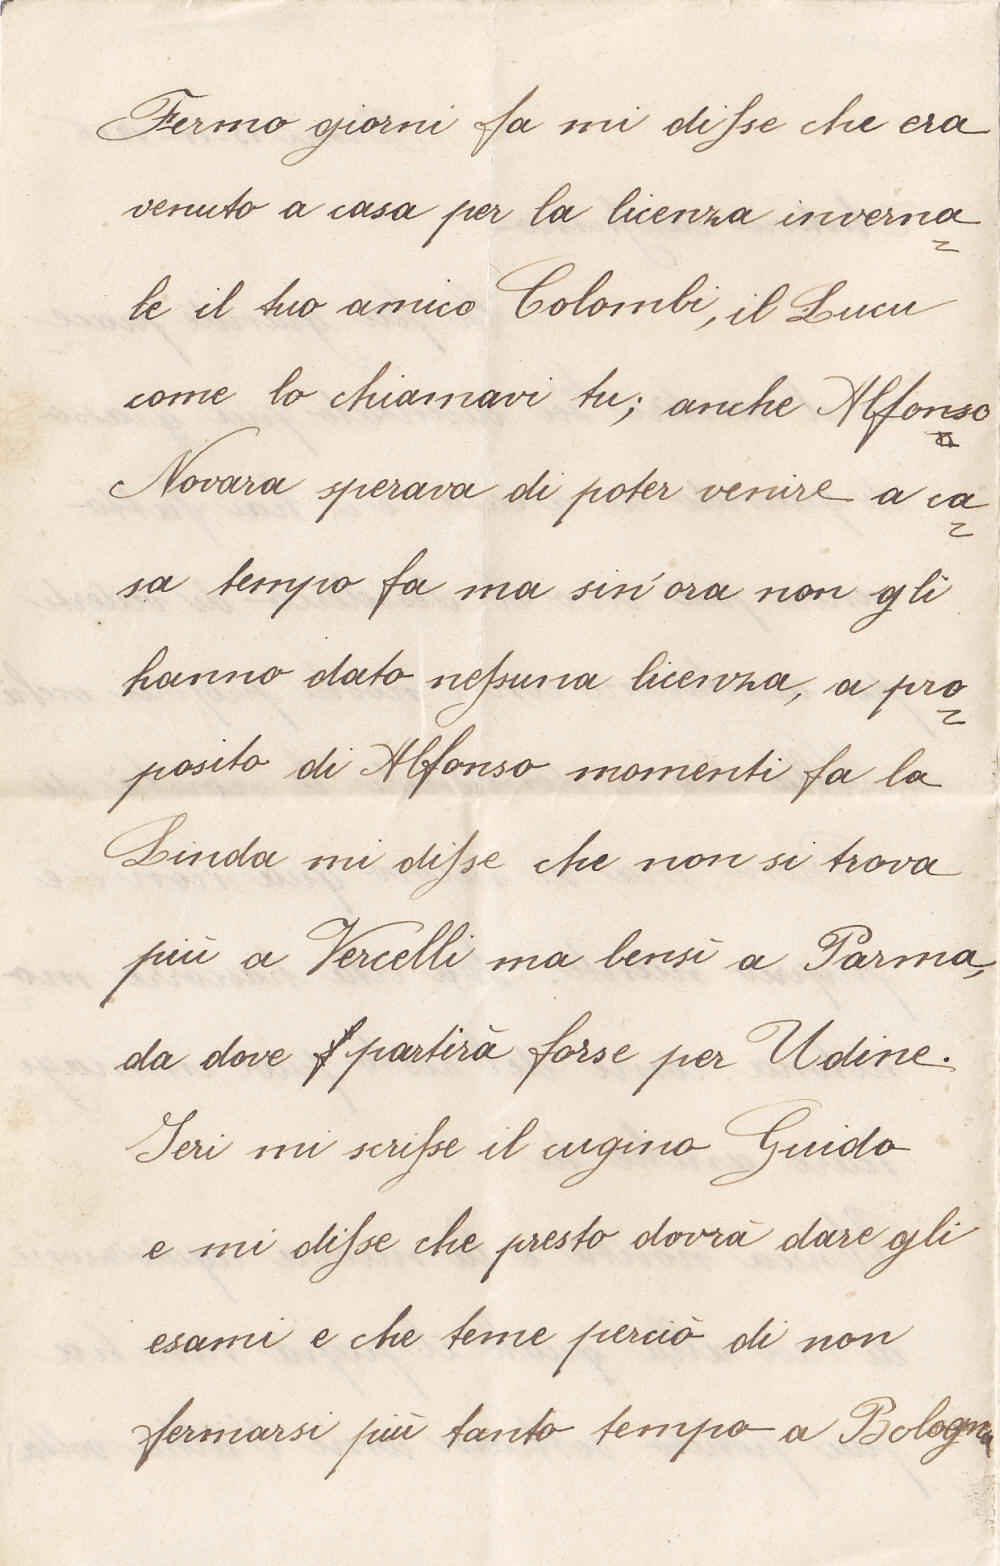 Fermo giorni fa mi disse che era
venuto a casa per la licenza inverna=
le il tuo amico Colombi, il Lucu
come lo chiamavi tu; anche Alfonso
Novara sperava di poter venire a ca=
sa tempo fa ma sin'ora non gli
hanno dato nessuna licenza, a pro=
posito di Alfonso momenti fa la
Linda mi disse che non si trova
più a Vercelli ma bensì a Parma,
da dove partirà forse per Udine.
Ieri mi scrisse il cugino Guido
e mi disse che presto dovrà dare gli
esami e che teme perciò di non
fermarsi più tanto tempo a Bologna